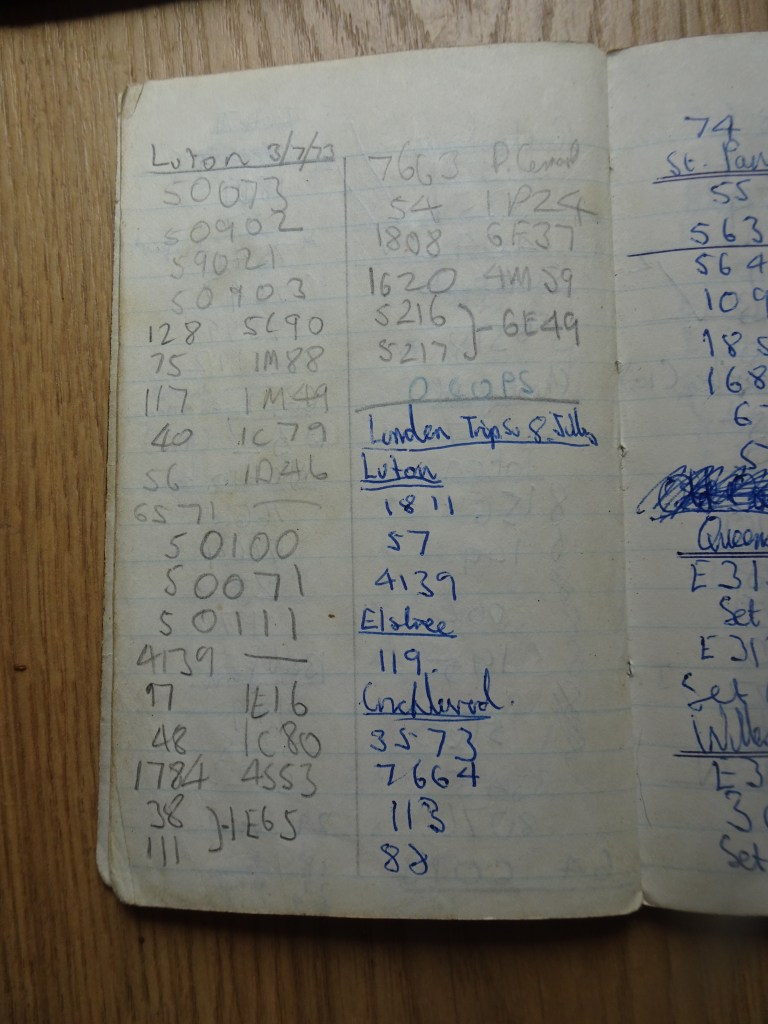 Luton 3/7/73
50073
50902
59021
50903
128 5C90
75 1M88
117 1M49
40 1C79
56 1D46
6571 —
50100
50071
50111
4139 —
97 1E16
48 1C80
1784 4S53
38 } - 1E65
111
7663
54 1P24
1808 6F37
1620 4M59
5216 } - 6E49
5217
0 COPS
London Trips. 8. July
Luton
1811
57
4139
Elstree
119.
Cricklewood.
3573
7664
113
88
74
St. Pan
55
563
564
109
185
168
6
5
Queen
E31
Set
E31
Set
Wille
E3
3
Set